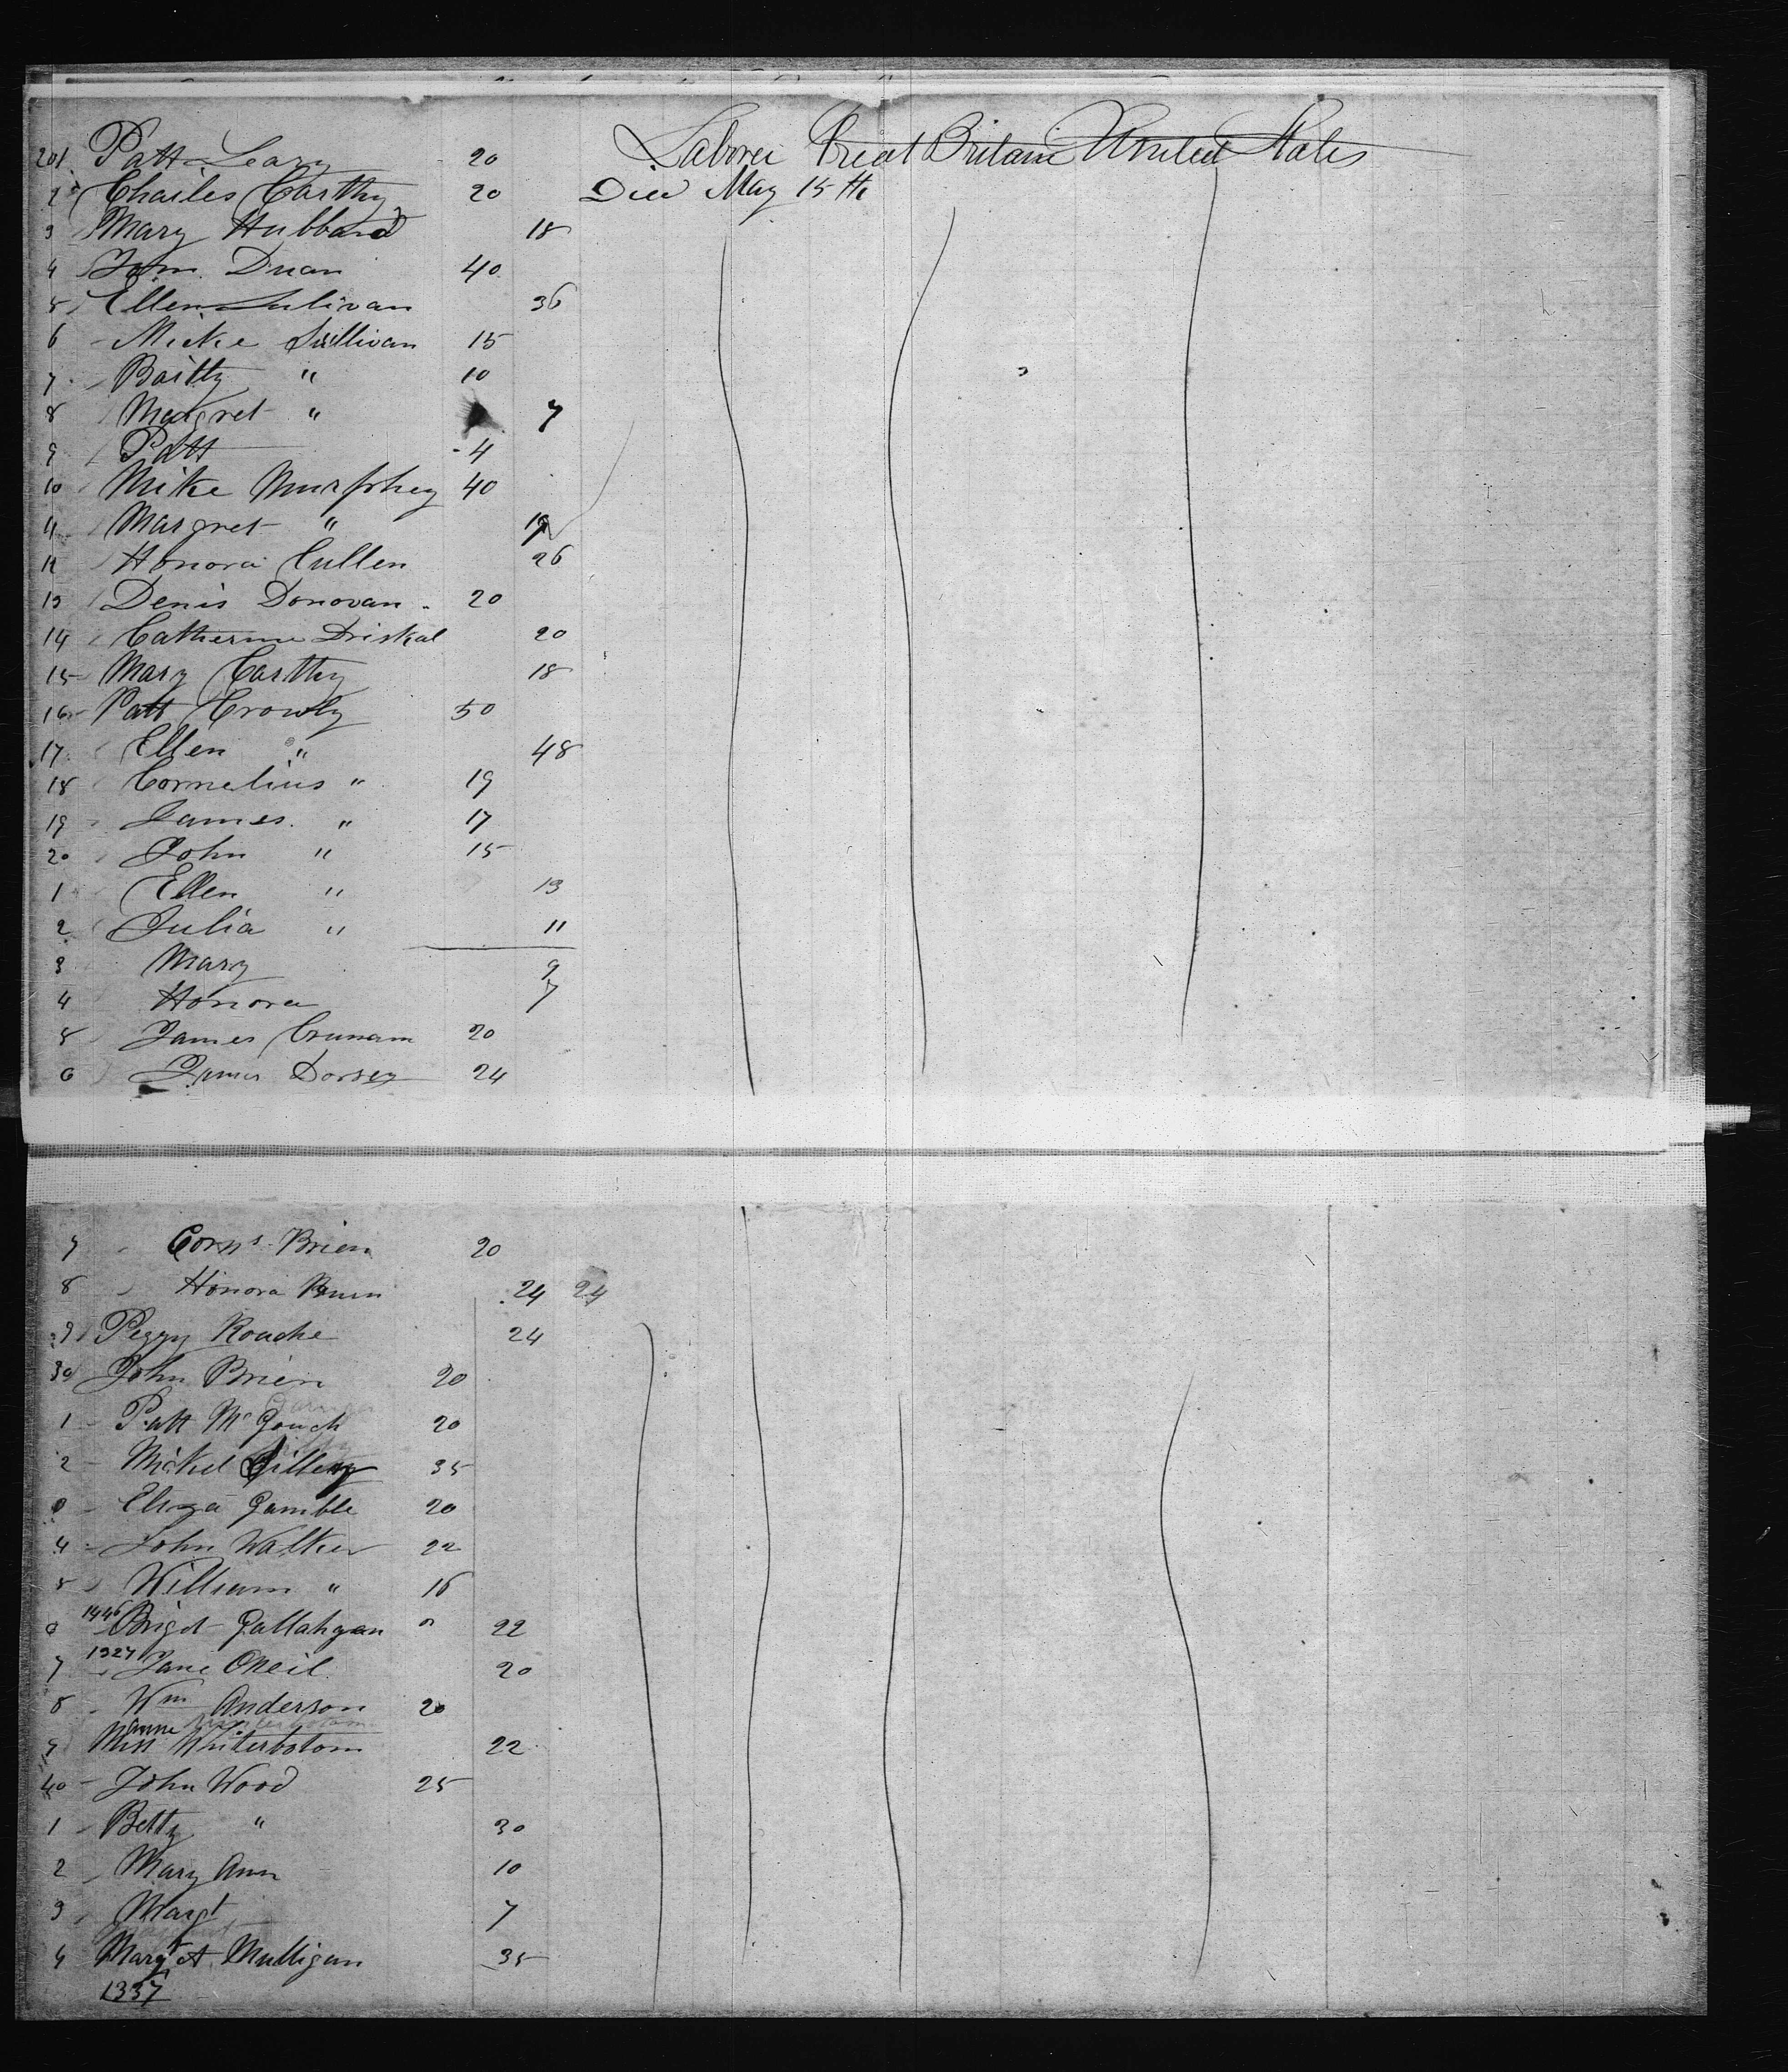 201 Patt Leary 20 Laborer Great Britain United States
2 Charles Carthy 20 Died May 15th
3 Mary Hubband 18
4 Duan 40
5 Ellen Sulivan 36
6 Micke Sullivan 15
7 Battty " 10
8 Margret " 7
9 Patt 4
10 Mike Murphey 40
11 Margret " 19
12 Honora Cullen 26
13 Denis Donovan 20
14 Catherine Driskal 20
15 Mary Carthy 18
16 Patt Crowly 50
17 Ellen " 48
18 Cornelius " 19
19 James " 17
20 John " 15
1 Ellen " 13
2 Julia " 11
3 Mary 9
4 Honora 7
5 James 20
6 James Dorsey 24
7 Corns Brien 20
8 Honora 24 24
9 Peggy Roache 24
30 John Brien 20
1 Patt McGouch 20
2 Mickel 35
3 Eliza Gamble 20
4 John Walker 22
5 William " 16
6 1446 Briget Gallahgan " 22
7 1327 Jane ONeil 20
8 Wm Anderson 20
Anne
9 Miss Winterbotom 22
40 John Wood 25
1 Betty " 30
2 Mary Ann 10
3 Margt 7
4 Margt A. Mulligan 35
1337